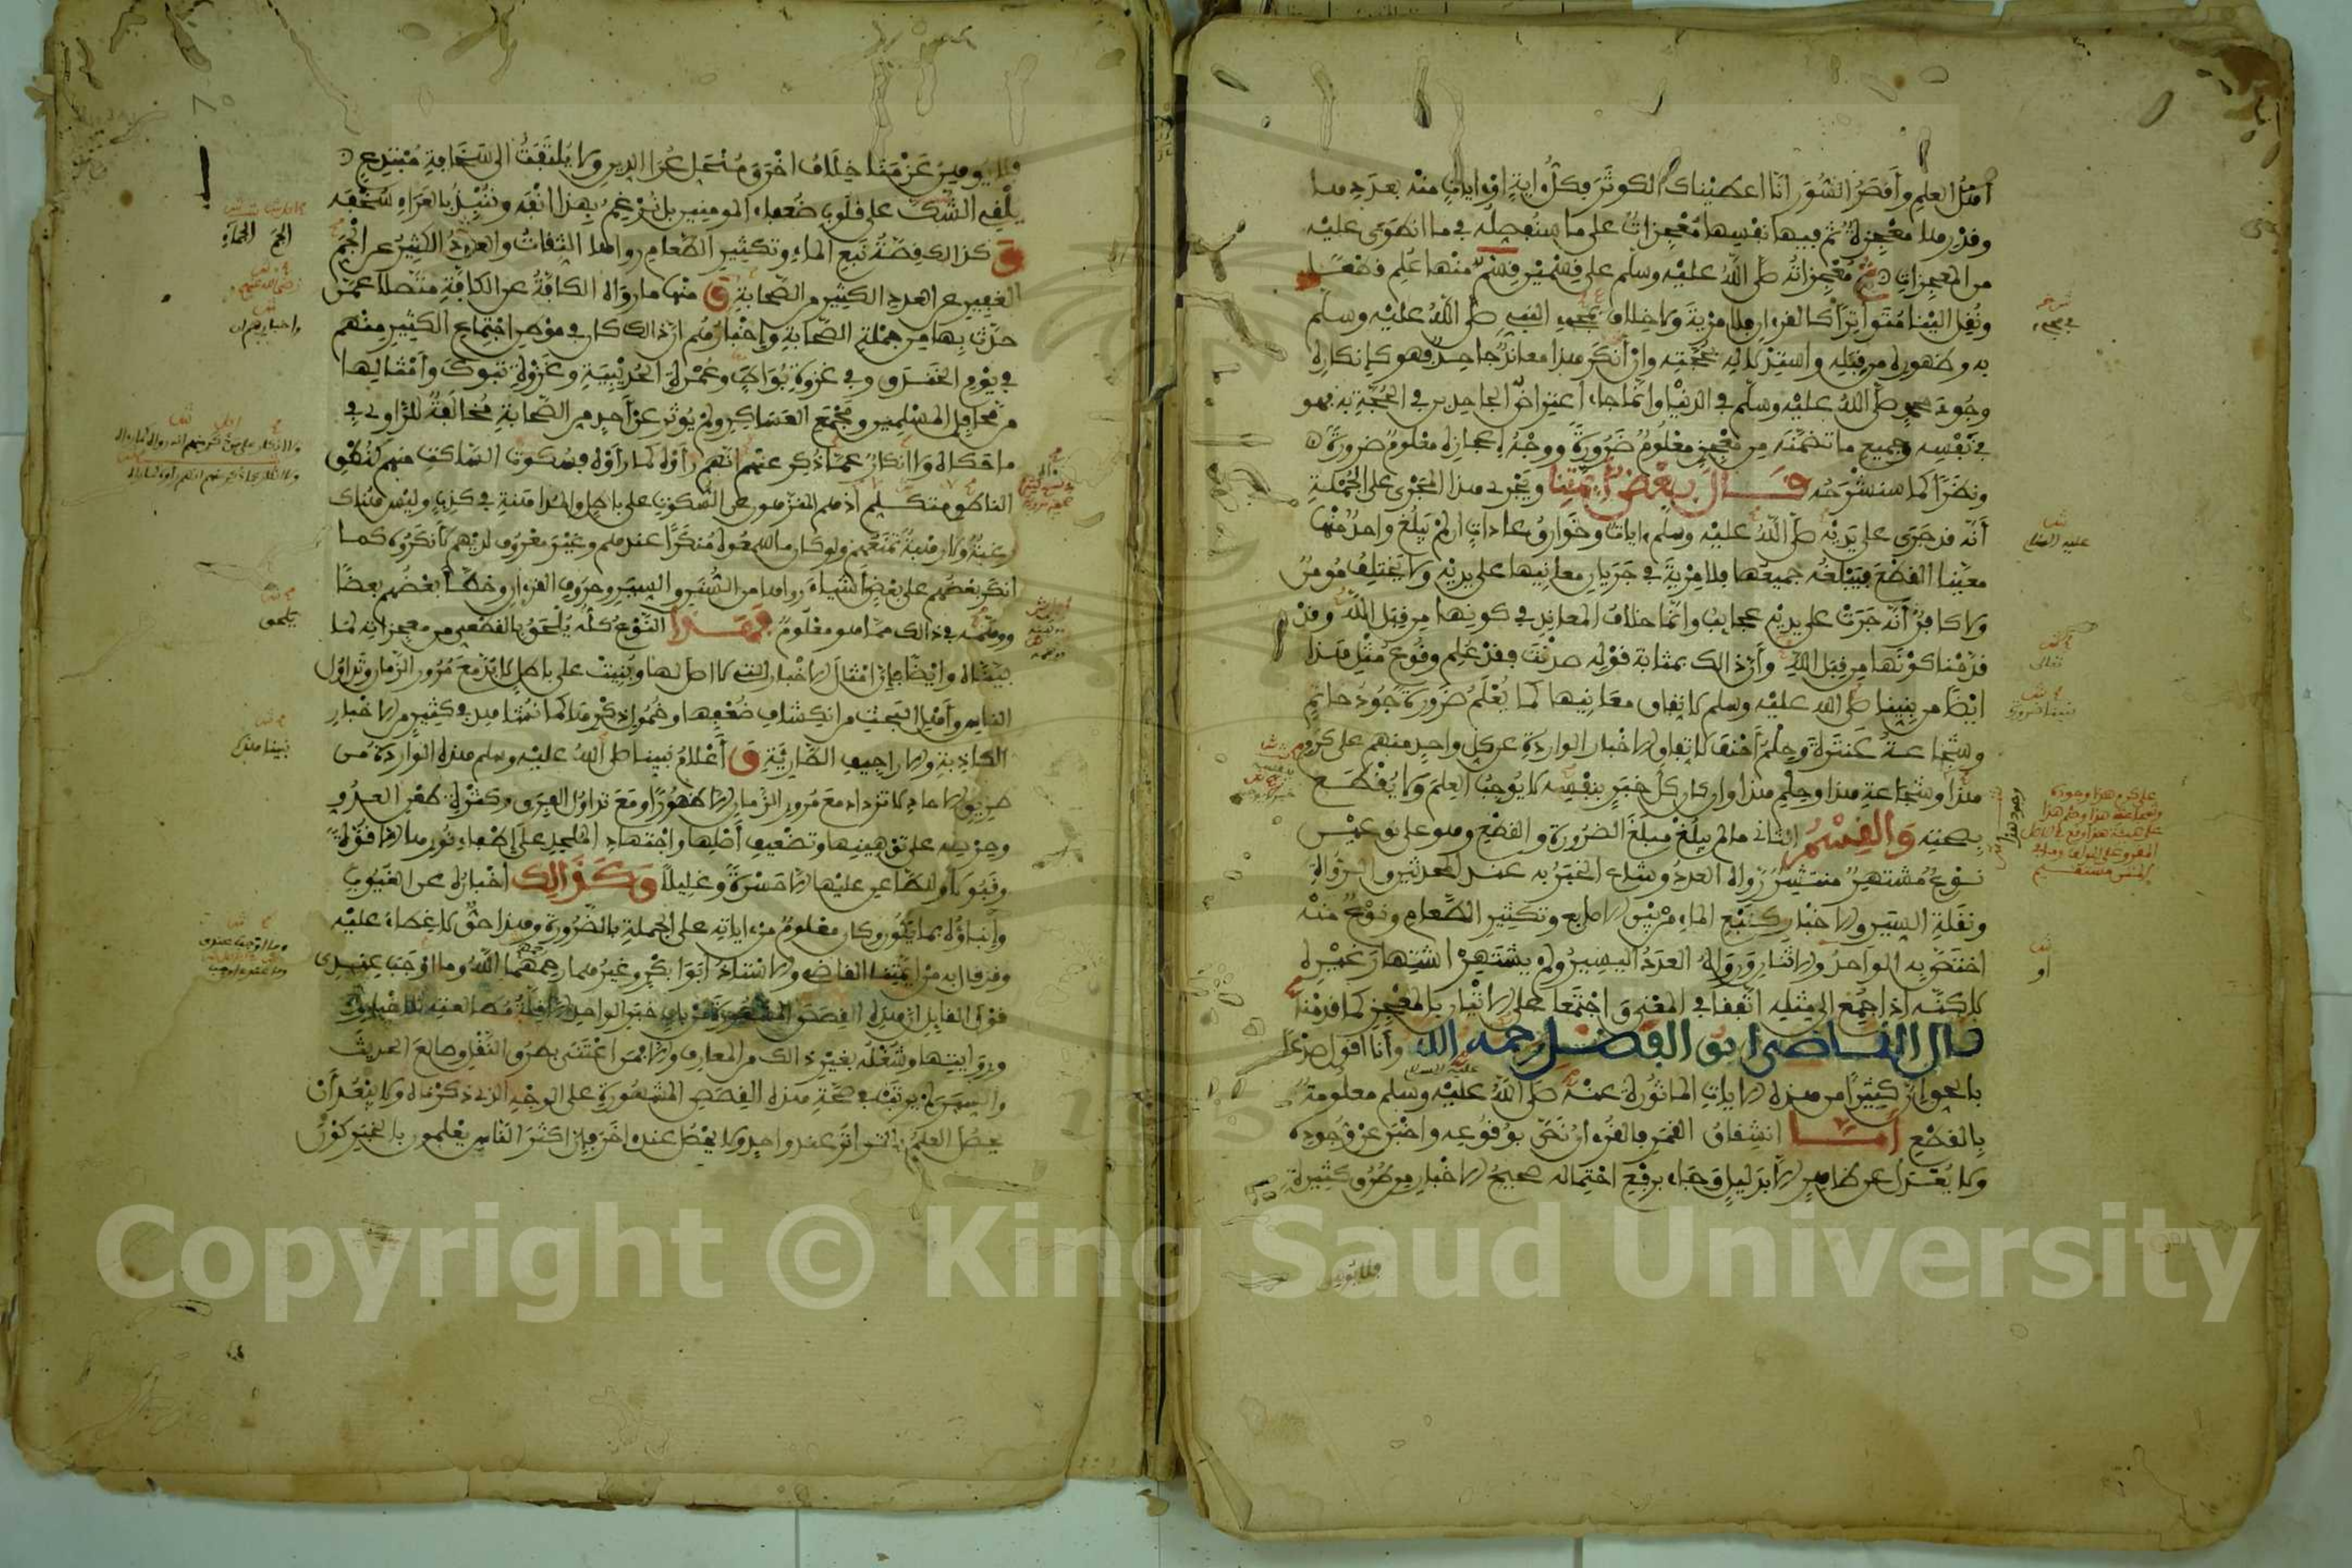 أهل العلم وأقصر السور انا اعطيناك الكوثر فكل اية او ايات منه بعدد ها
وقدرها معجزة ثم فيها نفسها معجزات على ما سنفصله في ما انطوى عليه
من المعجزات ثم معجزاته صلى الله عليه وسلم على قسمين قسم منها علم قطعا
ونقل الينا متواترا كالقرءان فلا مرية ولا خلاف بمجيء النبي صلى الله عليه وسلم
به وظهوره من قبله واستدلاله بحجته وان أنكر هذا معاند جاحد فهو كإنكاره
وجود محمد صلى الله عليه وسلم في الدنيا وإنما جاء اعتراض الجاحدين في الحجة به فهو
في نفسه وجميع ما تضمنه من معجز معلوم ضرورة ووجه إعجازه معلوم ضرورة
ونظرا كما سنشرحه قال بعض أئمتنا ويجري هذا المجرى على الجملة
أنه قد جرى على يديه صلى الله عليه وسلم ءايات وخوارق عادات ان لم يبلغ واحد منها
معينا القطع فيبلغه جميعها فلا مرية في جريان معانيها على يديه ولا يختلف مومن
ولا كافر أنه جرت على يديه عجايب وإنما خلاف المعاند في كونها من قبل الله وقد
قدمنا كونها من قبل الله وأن ذالك بمثابة قوله صدقت فقد علم وقوع مثل هذا
ايضا من نبينا صلى الله عليه وسلم لاتفاق معانيها كما يعلم ضرورة جود حاتم
وشجاعة عنترة وحلم أحنف لاتفاق الاخبار الواردة عن كل واحد منهم على كرم
هذا وشجاعة هذا وحلم هذا وان كان كل خبر بنفسه لا يوجب العلم ولا يقطع
بصحته والقسم الثاني ما لم يبلغ مبلغ الضرورة والقطع وهو على نوعين
نوع مشتهر منتشر رواه العدد وشاع الخبر به عند المحدثين والرواة
ونقلة السير والاخبار كنبع الماء من بين الاصابع وتكثير الطعام ونوع منه
اختص به الواحد والاثنان ورواه العدد اليسير ولم يشتهر اشتهار غيره
لاكنه اذا جمع الى مثله اتفقا في المعنى واجتمعا على الاتيان بالمعجز كما قدمنا
قال القاضي ابو الفضل رحمه الله وأنا اقول صدعا
بالحق ان كثيرا من هذه الايات الماثورة عنه صلى الله عليه وسلم معلومة
بالقطع أما انشقاق القمر فالقرءان نص بوقوعه واخبر عن وجوده
ولا يعدل عن ظاهر الا بدليل وجاء برفع احتماله صحيح الاخبار من طرق كثيرة
فلا يوهن
فلا يوهن عزمنا خلاف اخرق منحل عرا الدين ولا يلتفت الى سخافة مبتدع
يلقي الشك على قلوب ضعفاء المومنين بل نرغم بهذا انفه وننبذ بالعراء سخفه
وكذالك قصة نبع الماء وتكثير الطعام رواها الثقات والعدد الكثير عن الجم
الغفير عن العدد الكثير من الصحابة ومنها ما رواه الكافة عن الكافة متصلا عمن
حدث بها من جملة الصحابة وإخبارهم ان ذالك كان في موطن اجتماع الكثير منهم
في يوم الخندق وفي غزوة بواط وعمرة الحديبية وغزوة تبوك وأمثالها
من محافل المسلمين ومجمع العساكر ولم يوثر عن أحد من الصحابة مخالفة للراوي في
ما حكاه ولا انكار عما ذكر عنهم انهم رأوه كما رأوه فسكوت الساكت منهم كنطق
الناطق منهم اذ هم المنزهون عن السكوت على باطل والمداهنة في كذب وليس هناك
رغبة ولا رهبة تمنعهم ولو كان ما سمعوه منكرا عندهم وغير معروف لديهم لانكروه كما
انكر بعضهم على بعض أشياء رواها من السنن والسير وحروف القرءان وخطأ بعضهم بعضا
ووهمه في ذالك مما هو معلوم فهذا النوع كله يلحق بالقطعي من معجزاته لما
بيناه وايضا فإن امثال الاخبار التي لا اصل لها وبنيت على باطل لابد مع مرور الزمان وتداول
الناس وأهل البحث من انكشاف ضعفها وخمول ذكرها كما نشاهد في كثير من الاخبار
الكاذبة والاراجيف الطارية وأعلام نبينا صلى الله عليه وسلم هذه الواردة من
طريق الاحاد لا تزداد مع مرور الزمان الا ظهورا ومع تداول الفرق وكثرة طعن العدو
وحرصه على توهينها وتضعيف أصلها واجتهاد الملحد على إطفاء نورها الا قوة
وقبولا وللطاعن عليها الا حسرة وغليلا وكذالك اخباره عن الغيوب
وإنباؤه بما يكون وكان معلوم من ءاياته على الجملة بالضرورة وهذا حق لا غطاء عليه
وقد قال به من أئمتنا القاضي والاستاذ ابو بكر وغيرهما رحمهما الله وما اوجب عندي
قول القايل ان هذه القصص المشهورة من باب خبر الواحد الا قلة مطالعته للاخبار
وروايتها وشغله بغير ذالك من المعارف والا فمن اعتنى بطرق النقل وطالع الحديث
والسير لم يرتب في صحة هذه القصص المشهورة على الوجه الذي ذكرناه ولا يبعد أن
يحصل العلم بالتواتر عند واحد ولا يحصل عند اخر فإن اكثر الناس يعلمون بالخبر كون
Copyright © King Saud University